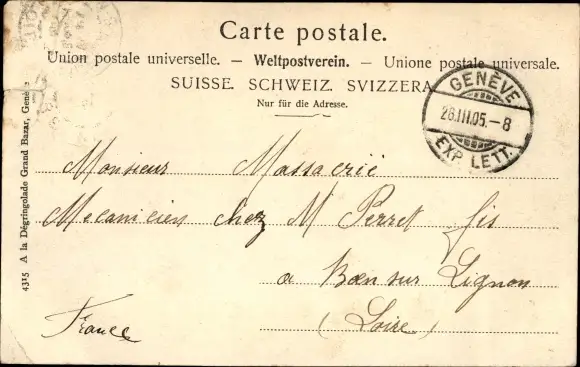 Carte postale.
Union postale universelle. — Weltpostverein. — Unione postale universale.
SUISSE. SCHWEIZ. SVIZZERA
Nur für die Adresse.
GENÈVE
26.III.05.-8
EXP. LETT.
Monsieur Massacrié
Mecanicien chez M Perret fis
a Boen sur Lignon
(Loire)
France
4315 A la Dégringolade Grand Bazar, Genève